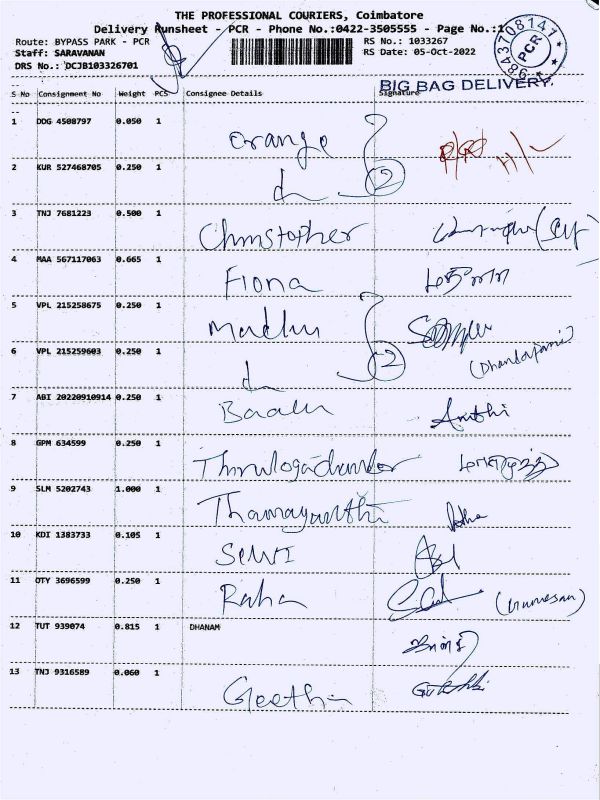 THE PROFESSIONAL COURIERS, Coimbatore
Delivery Runsheet - PCR - Phone No.:0422-3505555 - Page No.:1
Route: BYPASS PARK - PCR
RS No.: 1033267
Staff: SARAVANAN
RS Date: 05-Oct-2022
DRS No.: DCJB103326701
9843708141 PCR
BIG BAG DELIVERY.
S No Consignment No Weight PCS Consignee Details Signature
1 DDG 4508797 0.050 1 Orange
2 KUR 527468705 0.250 1 2
3 TNJ 7681223 0.500 1 Christopher
4 MAA 567117063 0.665 1 Fiona
5 VPL 215258675 0.250 1 Madhu
6 VPL 215259603 0.250 1 2 (Dhandapani)
7 ABI 20220910914 0.250 1
8 GPM 634599 0.250 1 Thirulogachander
9 SLM 5202743 1.000 1 Thamayanthi
10 KDI 1383733 0.105 1 Selvi
11 OTY 3696599 0.250 1 Raha
12 TUT 939074 0.815 1 DHANAM
13 TNJ 9316589 0.060 1 Geetha